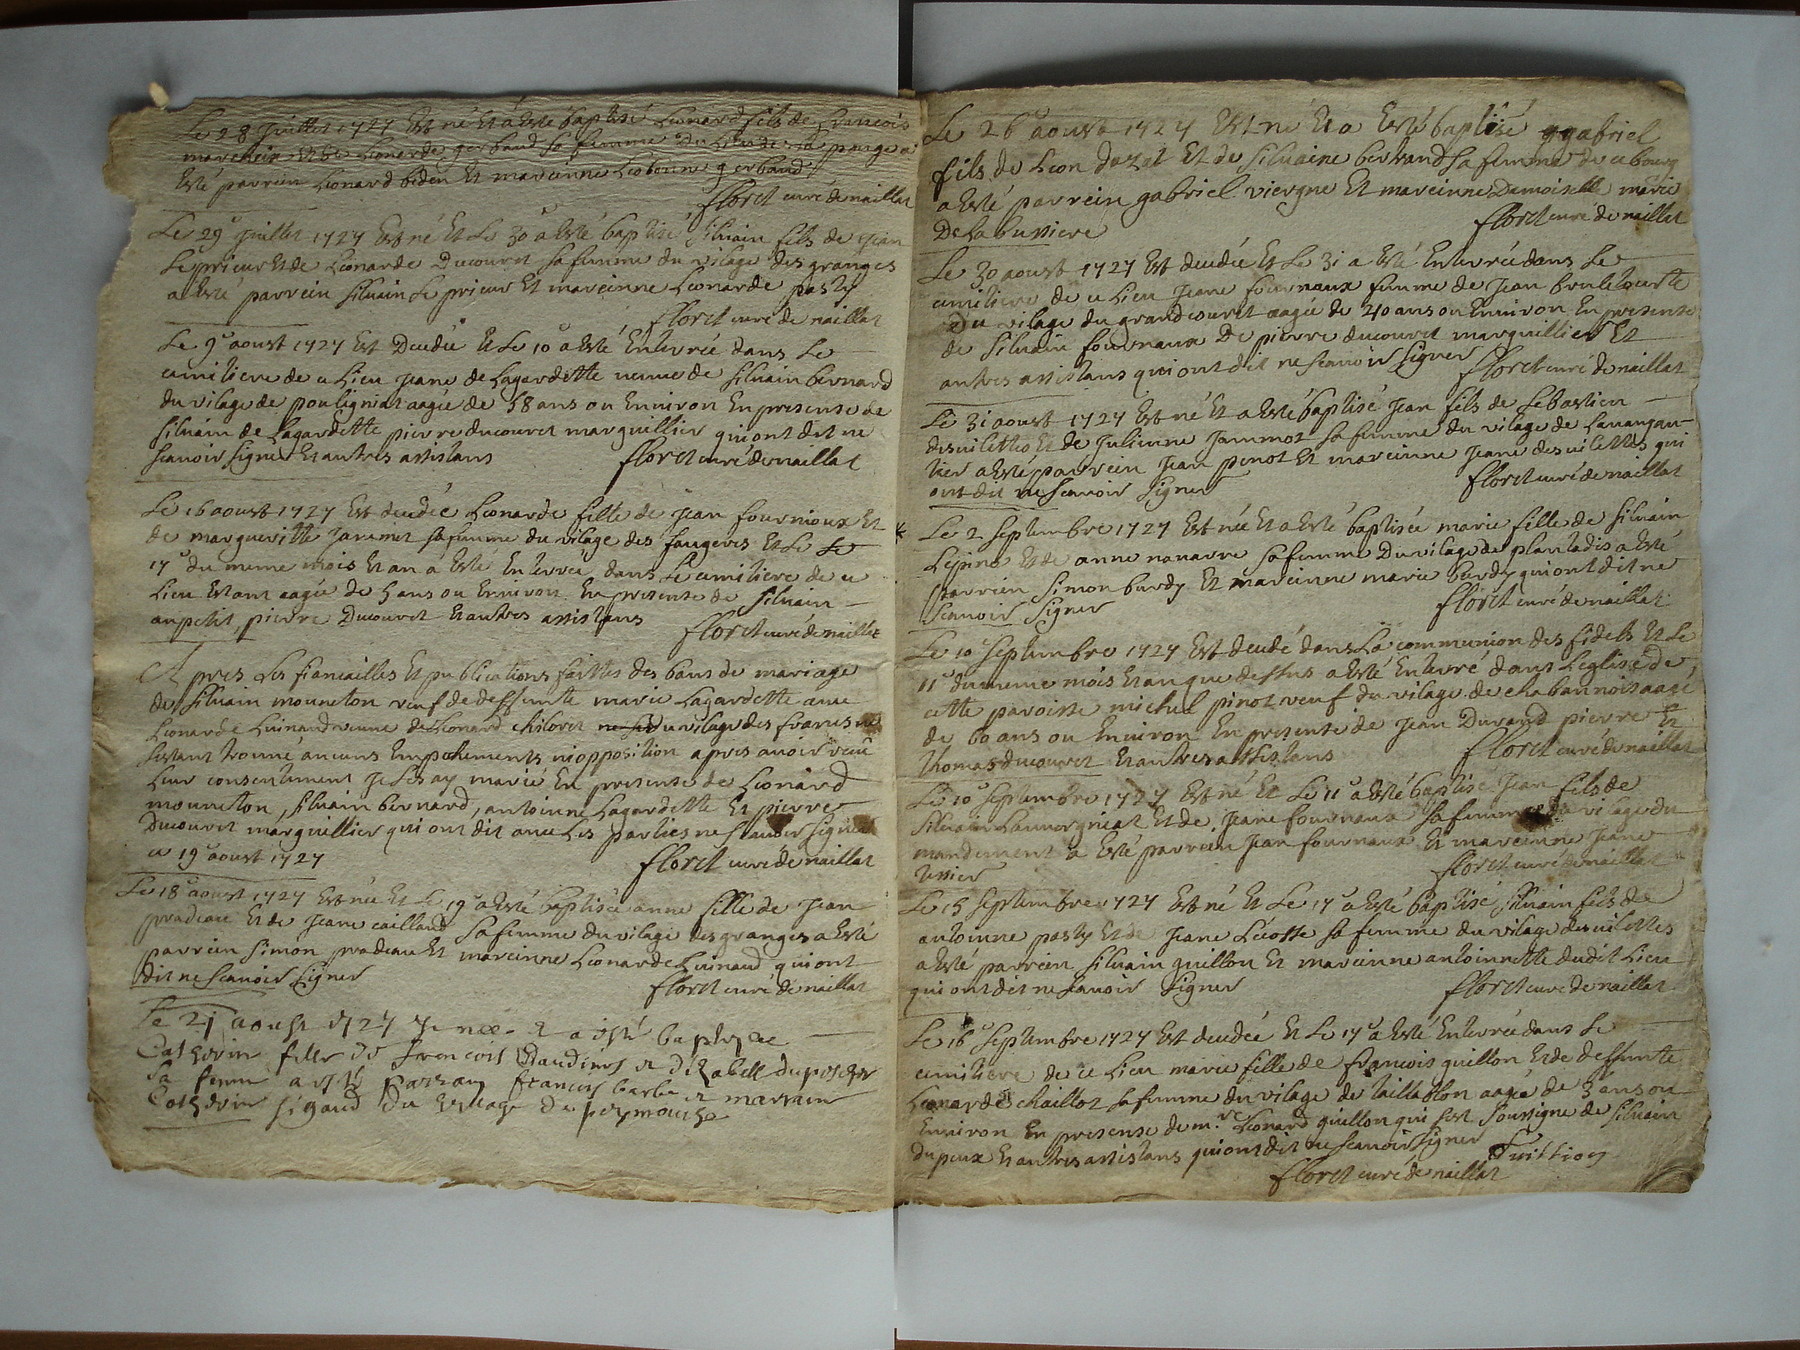 Le 28 Juillet 1727 Est né Et a Esté baptisé Leonard fils de François
marchein Et de Leonarde gerbaud sa femme du Lieu de
Esté parrein Leonard biden Et mareinne Leobonne gerbaud
floret curé de naillat
Le 29e Juillet 1727 Est né Et Le 30e a Esté baptisé silvain fils de Jean
Le prieur Et de Leonarde Ducouret sa femme du vilage des granges
a Esté parrein silvain Le prieur Et mareinne Leonarde pasty
floret curé de naillat
Le 9e aoust 1727 Est Decedée Et Le 10e a Esté Enterrée dans Le
cimitiere de ce Lieu Jeane de Lagardette veuve de silvain bernard
du vilage de pouligniat aagée de 58 ans ou Environ En presence de
silvain de Lagardette pierre ducouret marguillier qui ont dit ne
scavoir signer Et autres assistans floret curé de naillat
Le 16 aoust 1727 Est decedée Leonarde fille de Jean fournioux Et
de margueritte Jammet sa femme du vilage des faugeres Et Le Le
17e du meme mois Et an a Esté Enterrée dans Le cimitiere de ce
Lieu Estant aagée de 5 ans ou Environ En presence de silvain
aupetit, pierre Ducouret Et autres assistans floret curé de naillat
Apres Les fiancailles Et publications faittes des bans de mariage
de silvain mouneton veuf de deffunte marie Lagardette avec
Leonarde Luinaud veuve de Leonard chiloret du vilage des francs ne
sestant trouvé aucuns Empechements ni opposition apres avoir receu
Leur consentement Je Les ay marié En presence de Leonard
mouneton, silvain bernard, antoinne Lagardette Et pierre
Ducouret marguillier qui ont dit avec Les parties ne scavoir signer
ce 19e aoust 1727 floret curé de naillat
Le 18e aoust 1727 Est née Et Le 19e a Esté baptisée anne fille de Jean
pradeau Et de Jeane caillaud sa femme du vilage des granges a Esté
parrein simon pradeau Et mareinne Leonarde Luinaud qui ont
dit ne scavoir signer floret curé de naillat
Le 21 aoust 1727 e née e a esté baptisee
Catherin fille de francois et dizabelle
sa femme a esté parrain francois barbe et marrain
Catherin sigaud du village du peymouche
Le 26e aoust 1727 Est né Et a Esté baptisé ggabriel
fils de Leon dazat Et de silvaine bertrand sa femme de ce bourg
a Esté parrein gabriel viergne Et mareinne Damoiselle marie
De La bussiere floret curé de naillat
Le 30 aoust 1727 Est decedée Et Le 31 a Esté Enterrée dans Le
cimitiere de ce Lieu Jeane fournaux femme de Jean
Du vilage du grandcouret aagée de 40 ans ou Environ En presence
de silvain fournaux De pierre ducouret marguillier Et
autres assistans qui ont dit ne scavoir signer floret curé de naillat
Le 31 aoust 1727 Est né Et a Esté baptisé Jean fils de sebastien
desvilettes Et de Julienne Jammot sa femme du vilage de
a Esté parrein Jean pinot Et mareinne Jeane desvilettes qui
ont dit ne scavoir signer floret curé de naillat
Le 2 septembre 1727 Est née Et a Esté baptisée marie fille de silvain
Lepine Et de anne navarre sa femme Du vilage de plantadis a Esté
parrein simon burdy Et mareinne marie burdy qui ont dit ne
scavoir signer floret curé de naillat
Le 10e septembre 1727 Est decedé dans La communion des fidels Et Le
11e du meme mois Et an que dessus a Esté Enterré dans Leglise de
cette paroisse michel pinot veuf du vilage de chabannois aagé
de 60 ans ou Environ En presence de Jean Durand pierre Et
thomas ducouret Et autres assistans floret curé de naillat
Le 10e septembre 1727 Est né Et Le 11e a Esté baptisé Jean fils de
silvain Lamorgniat Et de Jeane fournaux sa femme du vilage du
mandement a Esté parrein Jean fournaux Et mareinne Jeane
tixier floret curé de naillat
Le 15 septembre 1727 Est né Et Le 17e a Esté baptisé silvain fils de
antoinne pasty Et de Jeane Lecosse sa femme du vilage desvilettes
a Esté parrein silvain guillon Et mareinne antoinnette dudit Lieu
qui ont dit ne scavoir signer floret curé de naillat
Le 16e septembre 1727 Est decedée Et Le 17e a Esté Enterrée dans Le
cimitiere de ce Lieu marie fille de francois guillon Et de deffunte
Leonarde chaillot sa femme du vilage de taillablon aagée de 3 ans ou
Environ En presence de mre Leonard guillon qui sest soussigné de silvain
dupeux Et autres assistans qui ont dit ne scavoir signer
floret curé de naillat